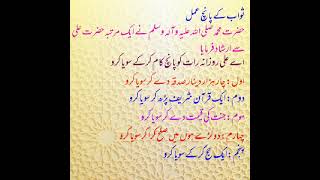 ثواب کے پانچ عمل
حضرت محمد صلی اللہ علیہ وآلہ وسلم نے ایک مرتبہ حضرت علی
سے ارشاد فرمایا
اے علی روزانہ رات کو پانچ کام کر کے سویا کرو
اول: چار ہزار دینار صدقہ دے کر سویا کرو
دوم: ایک قرآن شریف پڑھ کر سویا کرو
سوم: جنت کی قیمت دے کر سویا کرو
چہارم: دو لڑے ہوں میں صلح کرا کر سویا کرو
پنجم: ایک حج کر کے سویا کرو